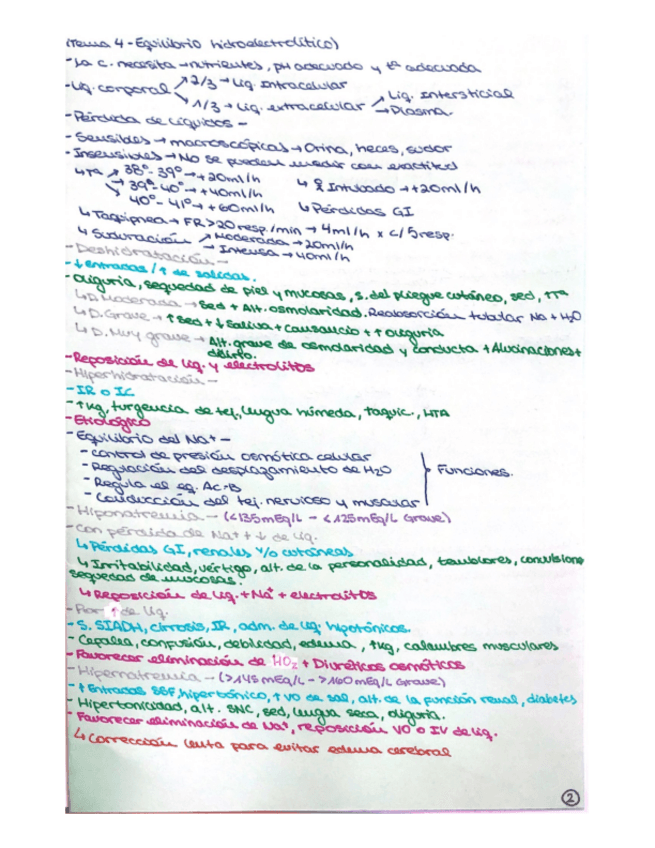 (Tema 4 - Equilibrio hidroelectrolítico)
- La c. necesita → nutrientes, pH adecuado y tª adecuada
- Liq. corporal ↗ 2/3 → Liq. Intracelular
↘ 1/3 → Liq. extracelular ↗ Liq. Intersticial
↘ Plasma.
- Pérdida de líquidos -
- Sensibles → macroscópicas → Orina, heces, sudor
- Insensibles → No se pueden medir con exactitud
↳ Tª ↗ 38º - 39º → +20ml/h
→ 39º - 40º → +40ml/h ↳ Intubado → +20ml/h
↘ 40º - 41º → +60ml/h ↳ Pérdidas GI
↳ Taquipnea → FR > 20 resp./min → 4ml/h x c/5 resp.
↳ Sudoración ↗ Moderada → 20ml/h
↘ Intensa → 40ml/h
- Deshidratación -
- ↓ entradas / ↑ de salidas.
- Oliguria, sequedad de piel y mucosas, s. del pliegue cutáneo, sed, ↑Tª
↳ D. Moderada → Sed + Alt. osmolaridad. Reabsorción tubular Na + H2O
↳ D. Grave → ↑ Sed + ↓ Saliva + Cansancio + ↑ Oliguria
↳ D. Muy grave → Alt. grave de osmolaridad y conducta + Alucinaciones +
delirio.
- Reposición de liq. y electrolitos
- Hiperhidratación -
- IR o IC
- ↑Kg, turgencia de tej., lengua húmeda, taquic., HTA
- Etiológico
- Equilibrio del Na+ -
- Control de presión osmótica celular
- Regulación del desplazamiento de H2O
- Regula el eq. Ac-B
- Conducción del tej. nervioso y muscular
Funciones.
- Hiponatremia - (<135mEq/L - <125mEq/L Grave)
- Con pérdida de Na+ + ↓ de liq.
↳ Pérdidas GI, renales y/o cutáneas
↳ Irritabilidad, vértigo, alt. de la personalidad, temblores, convulsione
sequedad de mucosas.
↳ Reposición de liq. + Na+ + electrolitos
- Por ↑ de liq.
- S. SIADH, cirrosis, IR, adm. de liq. hipotónicos.
- Cefalea, confusión, debilidad, edema, ↑kg, calambres musculares
- Favorecer eliminación de HO2 + Diuréticos osmóticos
- Hipernatremia - (>145mEq/L - >160mEq/L Grave)
- ↑ Entradas SSF, hipertónico, ↑ VO de sal, alt. de la función renal, diabetes
- Hipertonicidad, alt. SNC, sed, lengua seca, oliguria.
- Favorecer eliminación de Na+, reposición VO o IV de liq.
↳ Corrección lenta para evitar edema cerebral
2